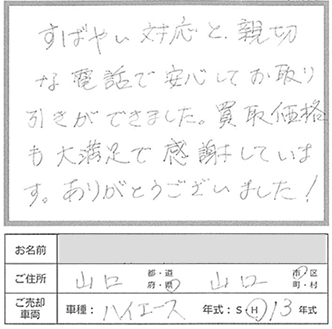 すばやい対応と、親切
な電話で安心してお取り
引きができました。買取価格
も大満足で感謝していま
す。ありがとうございました!
お名前
ご住所 山口 都・道府・県 山口 市・区町・村
ご売却車両 車種：ハイエース 年式：S・H 13年式